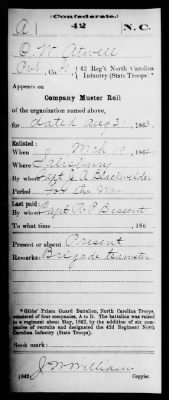 (Confederate.)
A 42 N.C.
C. W. Atwell
Pvt, Co. A, 42 Reg't North Carolina
Infantry (State Troops).*
Appears on
Company Muster Roll
of the organization named above,
for dated Aug 31, 1863.
Enlisted:
When Mch 19, 186
Where Salisbury
By whom Capt. J. A. Blackwelder
Period For the War
Last paid:
By whom Capt R P Bessent
To what time , 186 .
Present or absent Present
Remarks: Brigade teamster
*Gibbs' Prison Guard Battalion, North Carolina Troops,
consisted of four companies, A to D. The battalion was raised
to a regiment about May, 1862, by the addition of six com-
panies of recruits and designated the 42d Regiment North
Carolina Infantry (State Troops).
Book mark:
J W William
(642) Copyist.